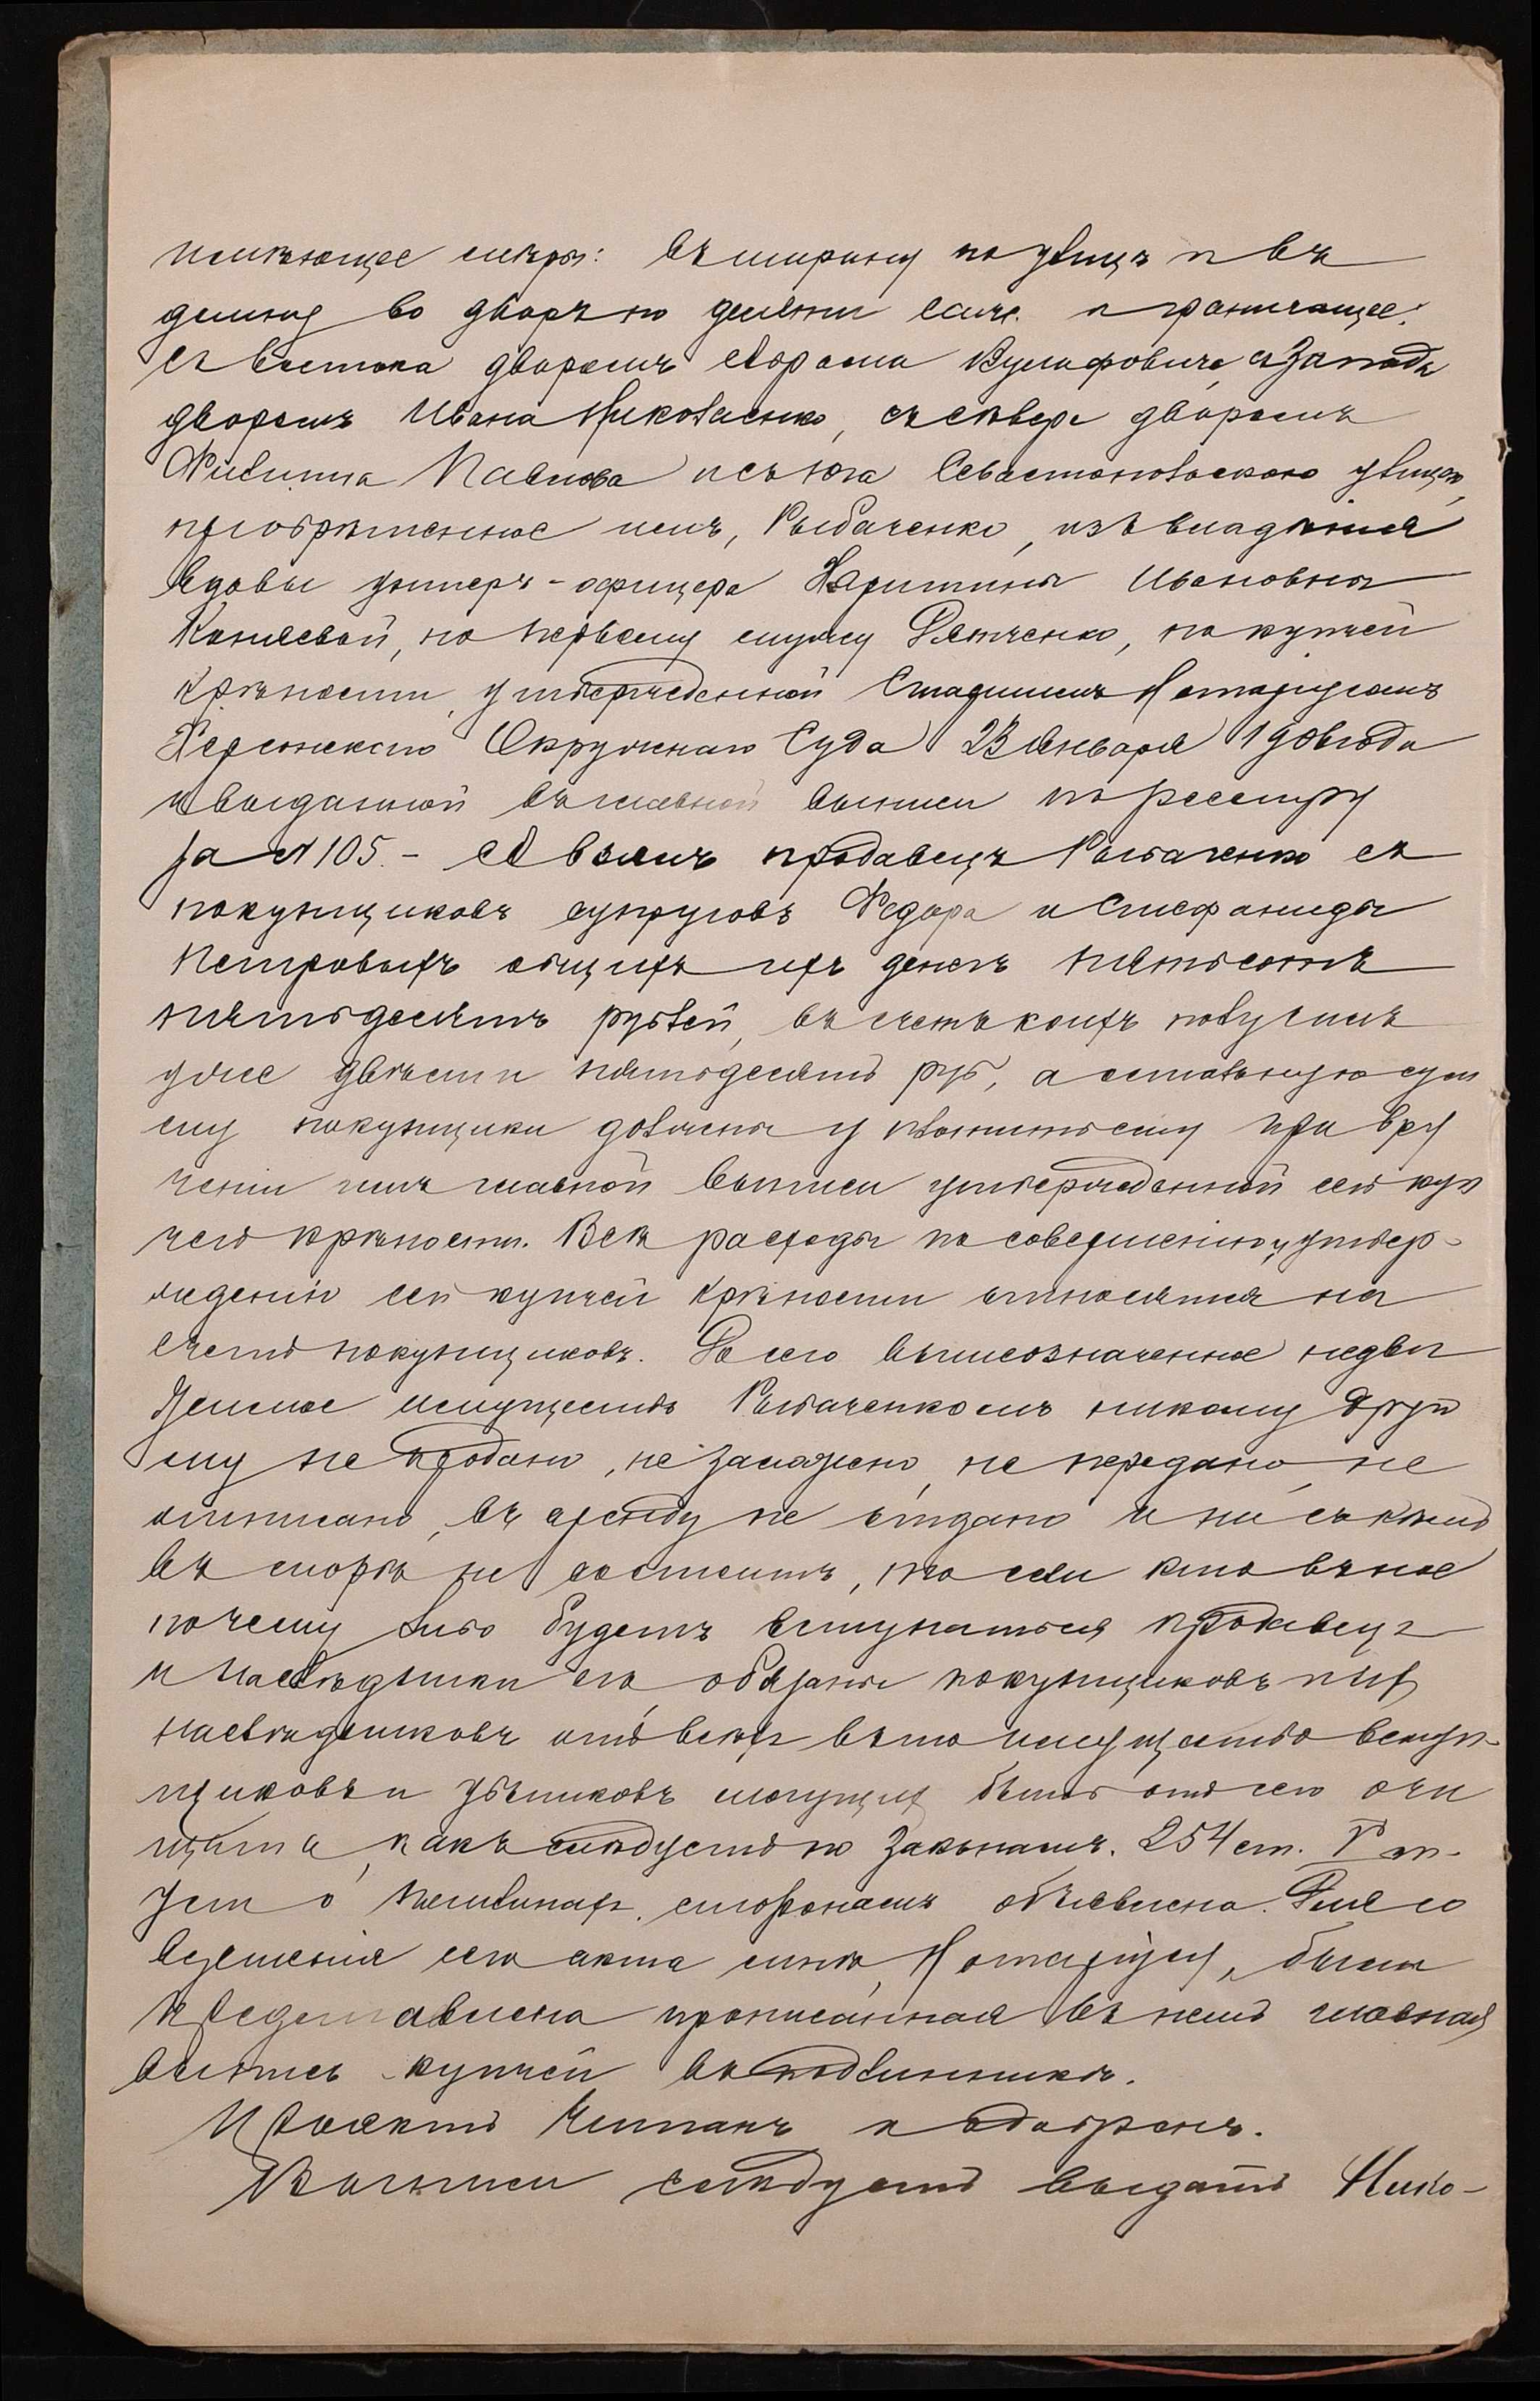 имѣющее мѣры: въ ширину по улицѣ и въ
длину во дворъ по десяти саж. и граничащее:
съ востока дворомъ Абрама Вульфовича, съ запада
дворомъ Ивана Николаенко, съ сѣвера дворомъ
Филиппа Павлова и съ юга Севастопольскою улицею,
пріобрѣтенное имъ, Рыбаченко, изъ владѣнія
вдовы унтеръ-офицера Харитины Ивановны
Коняевой, по первому мужу Дятченко, по купчей
крѣпости, утвержденной Старшимъ Нотаріусомъ
Херсонскаго Окружнаго Суда 23 Января 1906 года
и выданной въ главной выписи по реестру
за № 105. - А взялъ продавецъ Рыбаченко съ
покупщиковъ супруговъ Федора и Стефаниды
Петровыхъ общихъ ихъ денегъ пятьсотъ
пятьдесятъ рублей, въ счетъ коихъ получилъ
уже двѣсти пятьдесятъ руб, а остальную сум
му покупщики должны уплатить ему при вру
ченіи имъ главной выписи утвержденной сей куп
чей крѣпости. Всѣ расходы по совершенію и утвер-
жденію сей купчей крѣпости относятся на
счетъ покупщиковъ. До сего вышеозначенное недви
жимое имущество Рыбаченкомъ никому друго
му не продано, не заложено, не передано, не
отписано, въ аренду не отдано и ни съ кѣмъ
въ спорѣ не состоитъ, то если кто въ нее
почему либо будетъ вступаться продавецъ
и наслѣдники его, обязаны покупщиковъ и ихъ
наслѣдниковъ отъ всѣхъ въ то имущество вступ-
щиковъ и убытковъ могущихъ быть отъ сего очи
щать, какъ слѣдуетъ по законамъ. 254 ст. V т.
Уст о пошлинахъ, сторонамъ объявлена. Для со
вершенія сего акта мнѣ, Нотаріусу, была
представлена прописанная въ немъ главная
выпись купчей въ подлинникѣ.
Проектъ читанъ и одобренъ.
Выписи слѣдуетъ выдать Нико-